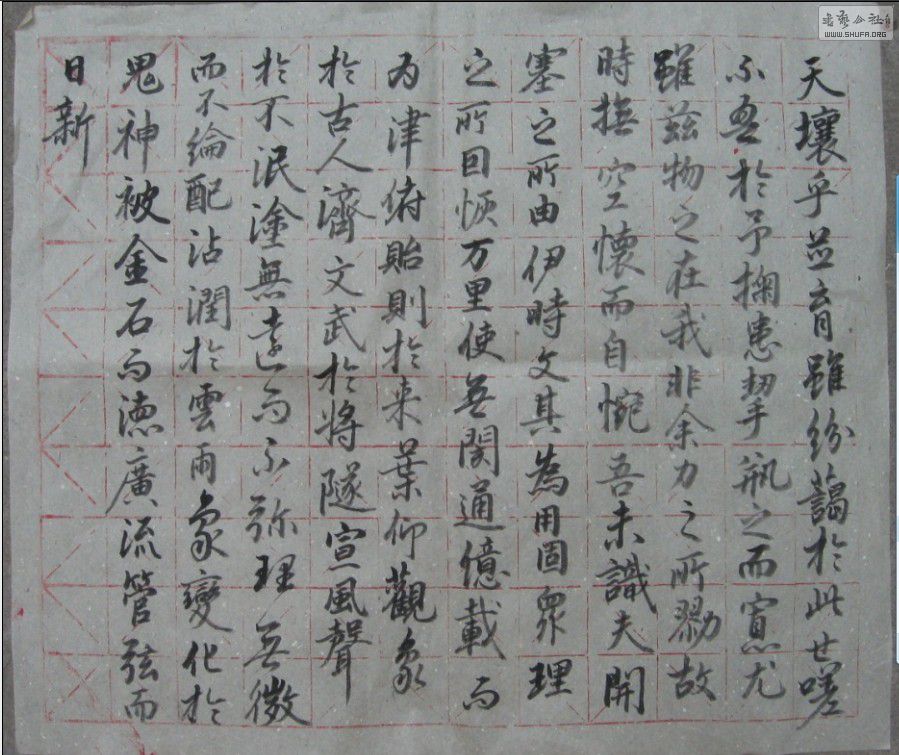 天壤乎並育雖紛藹於此世嗟
不盈於予掬患挈瓶之而寡尤
雖茲物之在我非余力之所勠故
時撫空懷而自惋吾未識夫開
塞之所由伊時文其為用固眾理
之所因恢万里使无閡通億載而
為津俯貽則於来葉仰觀象
於古人濟文武於將隧宣風聲
於不泯塗無遠而不弥理无微
而不綸配沾潤於雲雨象變化於
鬼神被金石而德廣流管弦而
日新
書藝公社
WWW.SHUFA.ORG